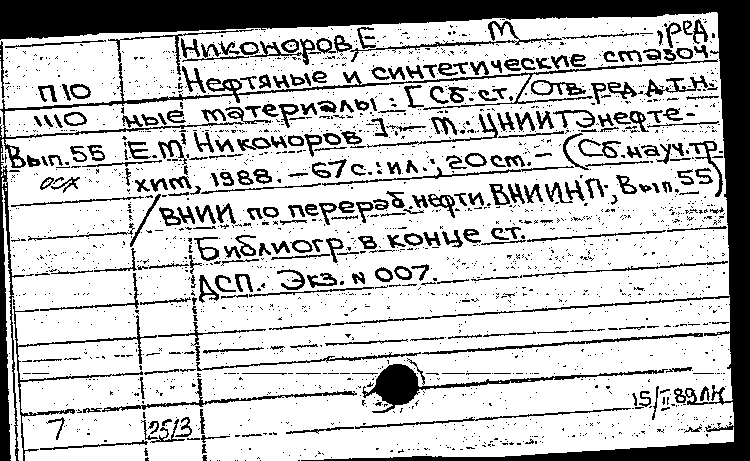 Никоноров, Е М , ред.
Нефтяные и синтетические смазоч-
П 10
1110 ные материалы : [ Сб. ст. / Отв. ред. д.т.н.
Вып. 55 Е.М Никоноров ]. – М.: ЦНИИТЭнефте-
осх хим, 1988. – 67 с. : ил. ; 20 см. – (Сб. науч. тр.
/ ВНИИ по перераб. нефти. ВНИИНП ; Вып. 55)
Библиогр. в конце ст.
ДСП. Экз. N 007.
15/II 89
7 25/3